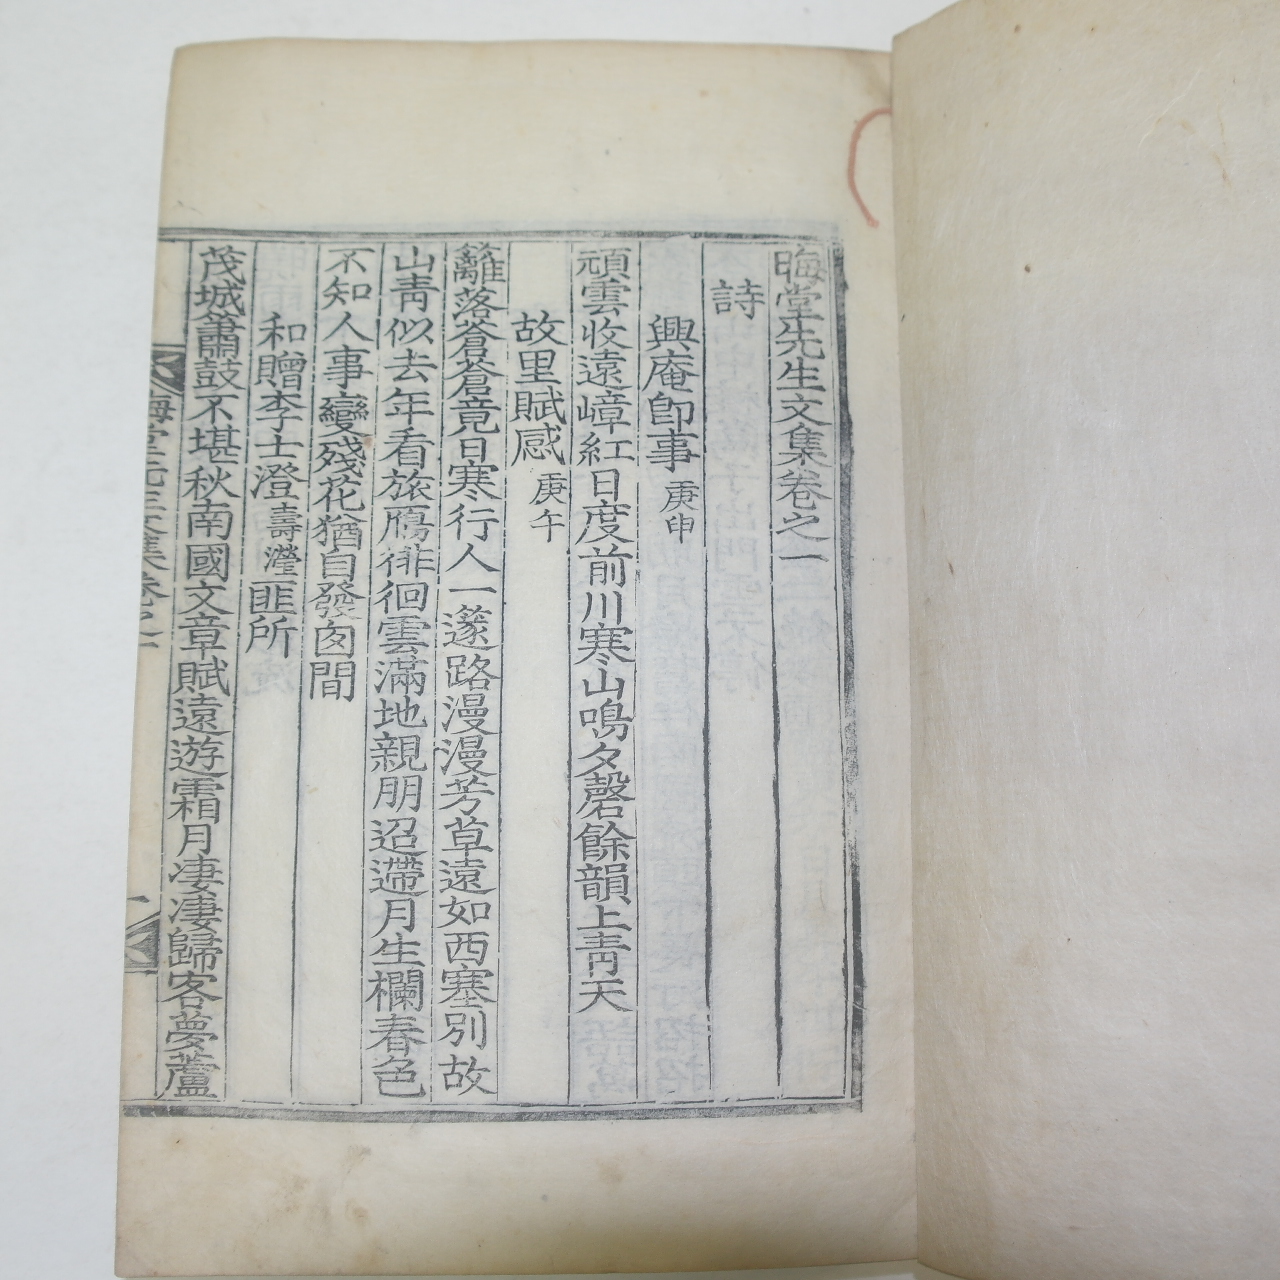 晦堂先生文集卷之一
詩
興庵卽事 庚申
頑雲收遠嶂紅日度前川寒山鳴夕磬餘韻上靑天
故里賦感 庚午
籬落蒼蒼竟日寒行人一邃路漫漫芳草遠如西塞別故
山靑似去年看旅鴈徘徊雲滿地親朋迢滯月生欄春色
不知人事變殘花猶自發囱間
和贈李士澄 壽瀅 匪所
茂城簫鼓不堪秋南國文章賦遠遊霜月凄凄歸客夢蘆
晦堂先生文集卷之一